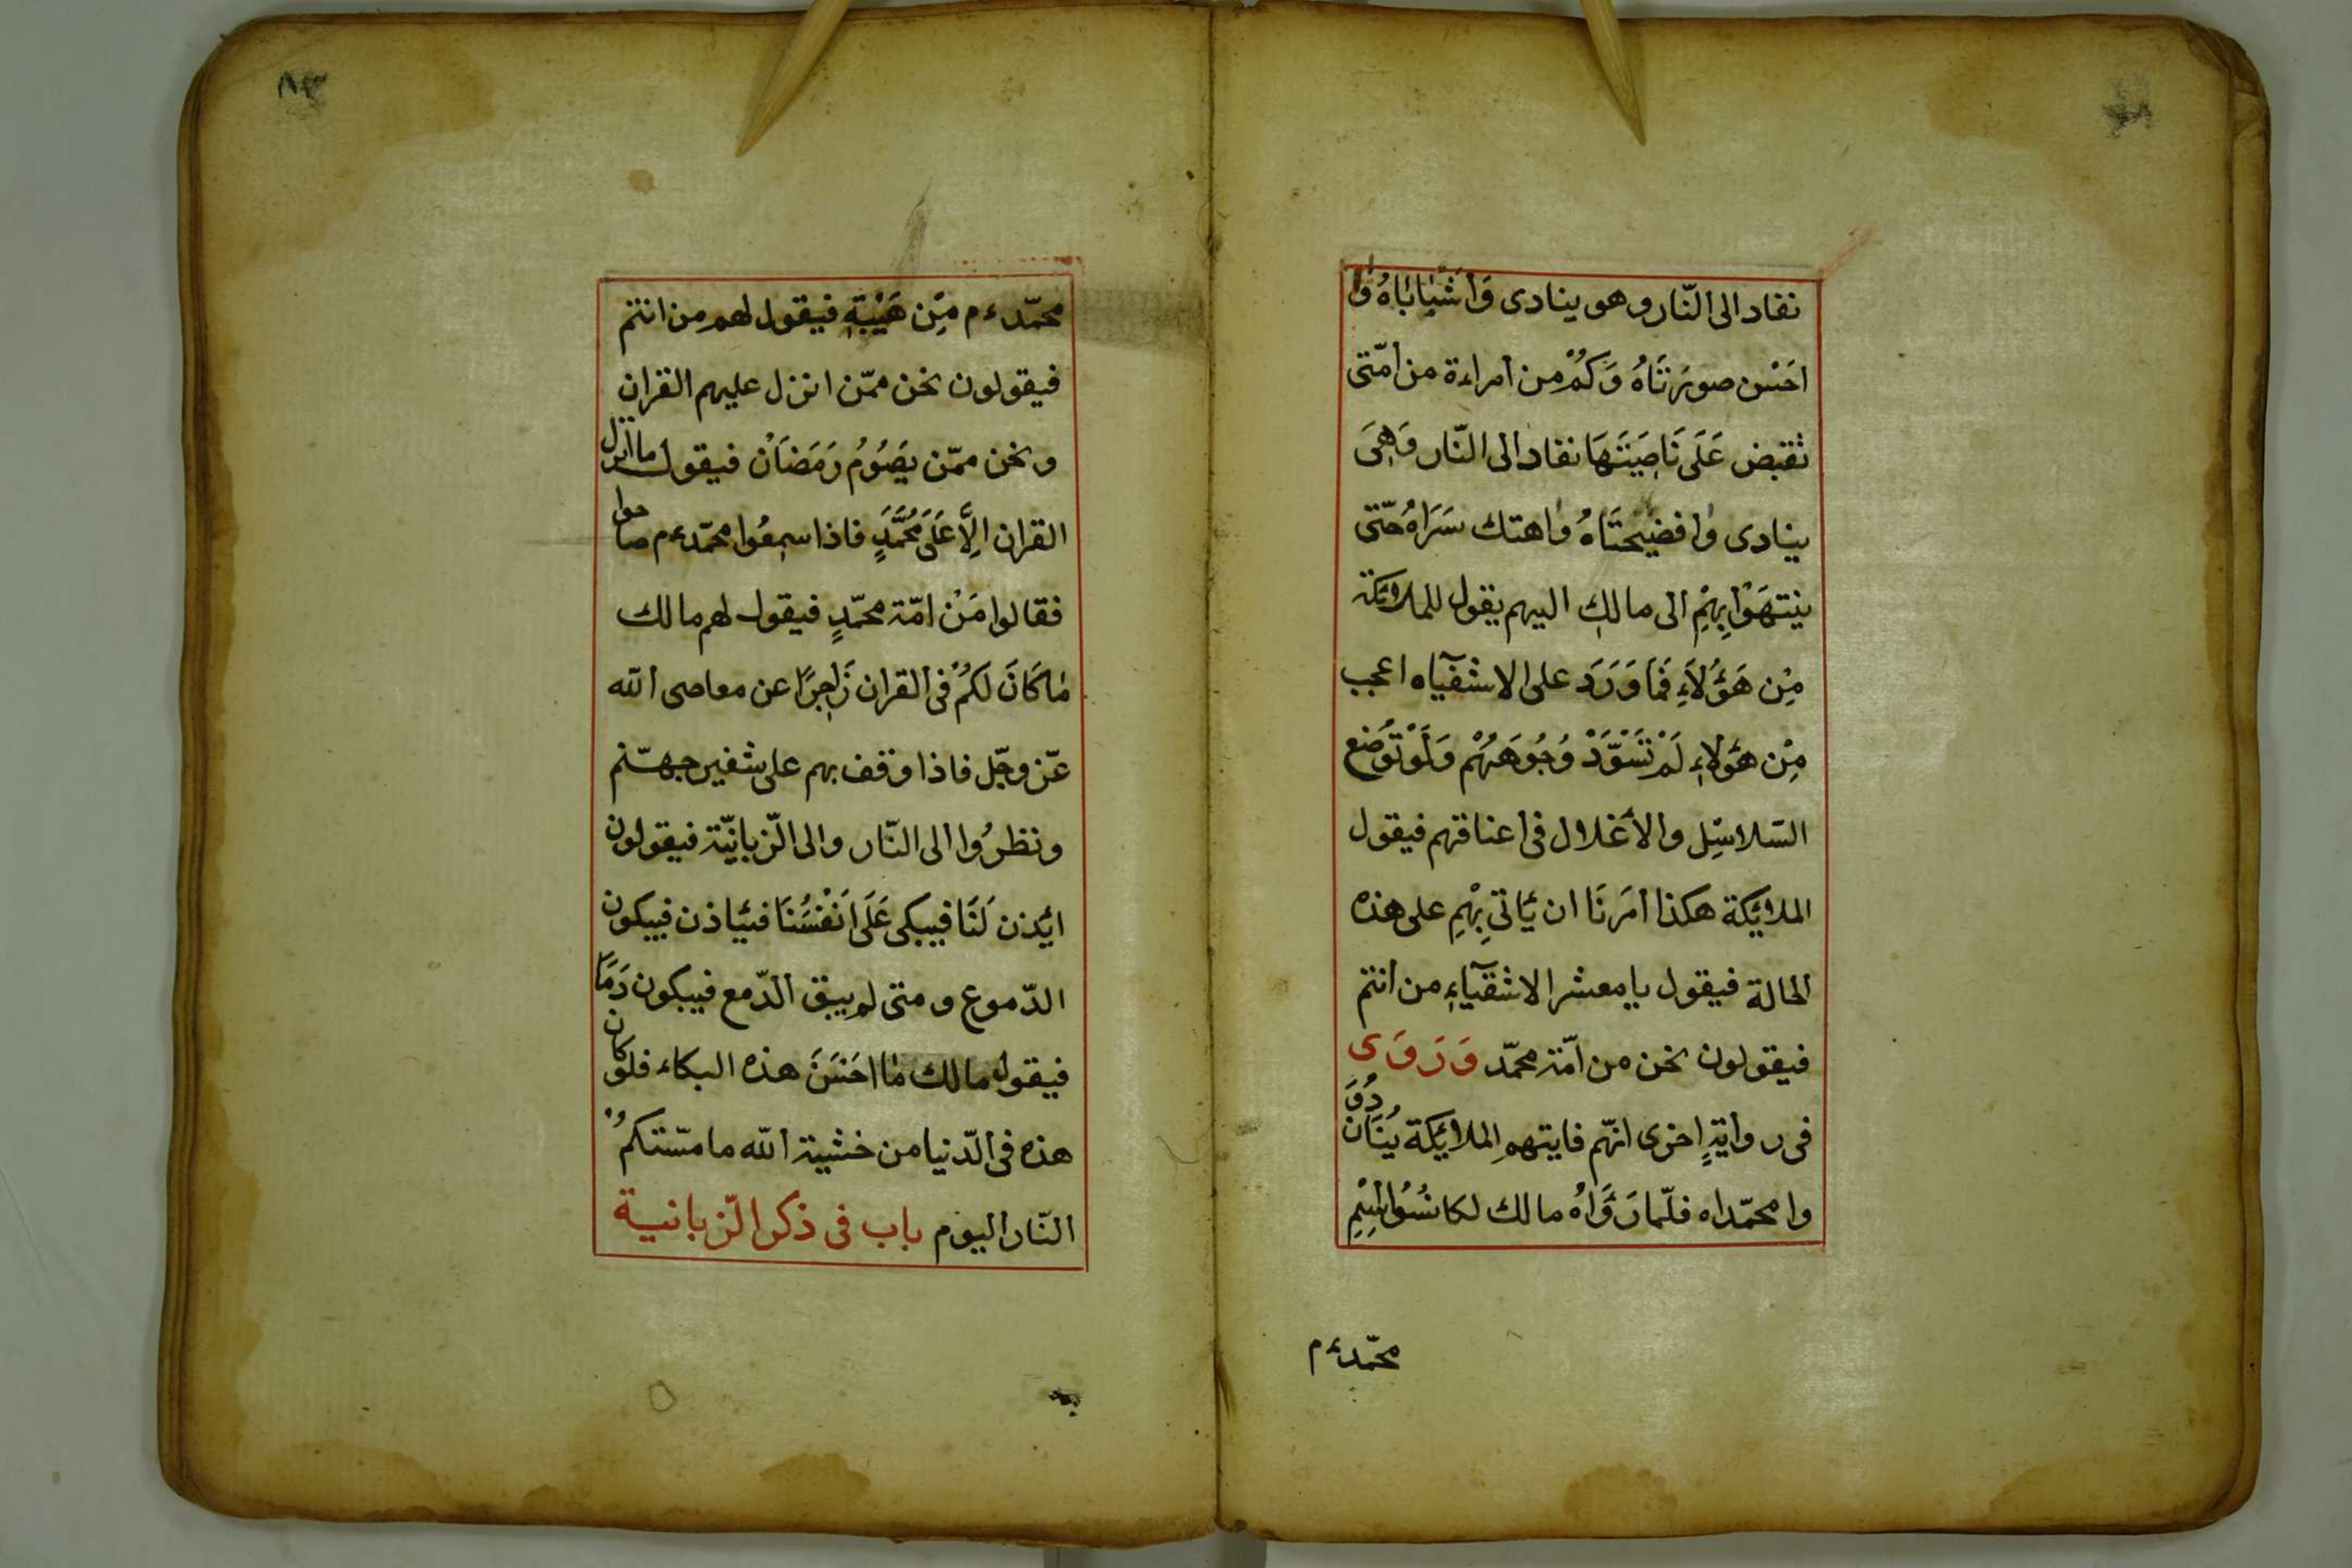 نقاد الى النّار وهو ينادى وَا شَيَّابَاهُ وَا
احَسْن صورَتَاهُ وَكَمْ مِن امراءة من امّتى
تقبض عَلَى نَاصِيَتَهَا نقاد الى النّار وَهِىَ
ينادى وا فضيحتَاهُ واهتك سَرَاهُ حتّى
ينتهَوْا بِهِمْ الى مالك اليهم يقول للملائكة
مِنْ هَؤُلَاءِ فَمَا وَرَدَ على الاشقيآء اعجب
مِنْ هؤلاءِ لَمْ تَسْوَّدْ وُجُوهَهُمْ وَلَوْ تُوضع
السّلاسِل والأغلال فى اعناقهم فيقول
الملائكة هكذا امَرنَا ان ئَاتِى بِهِمْ على هذه
الحالة فيقول يا معشر الاشقيآءِ من انتم
فيقولون نحن من امّة محمّد وَرَوَى
فى روايةٍ اخرى انّهم فايتهم الملائكة يُنَادُوَن
وا محمّداه فلمّا رَؤَاهُ مالك لكا نسُوا اسْمِ
محمّد ءم
٨٣
محمّد ءم مِن هَيْبَةِ فيقول لهم من انتم
فيقولون نحن ممّن انزل عليهم القران
ونحن ممّن يَصُوُمُ رَمَضَانْ فيقول ما انزل
القران الِاَّ عَلَى مُحَمَّدٍ فاذا سمِعُوا محمّد ءم صاحوا
فقالوا مَنْ امّة محمّدٍ فيقول لهم مالك
مَا كَانَ لَكُمْ فى القران زَاجِرًا عن معاصى الله
عزّ وجلّ فاذا وقف بهم على شفير جهنّم
ونظرُوا الى النّار والى الزّبانيّة فيقولون
ائذن لَنَا فيبكى عَلَى انَفْسُنَا فئاذن فيبكون
الدّموع ومتى لم يبق الدّمع فيبكون دَمًا
فيقول مالك مَا احَسَنَ هذه البكاء فلو كان
هذه فى الدّنيا من خشية الله ما مسّتكمُ
النّار اليوم باب فى ذكر الزّبانية